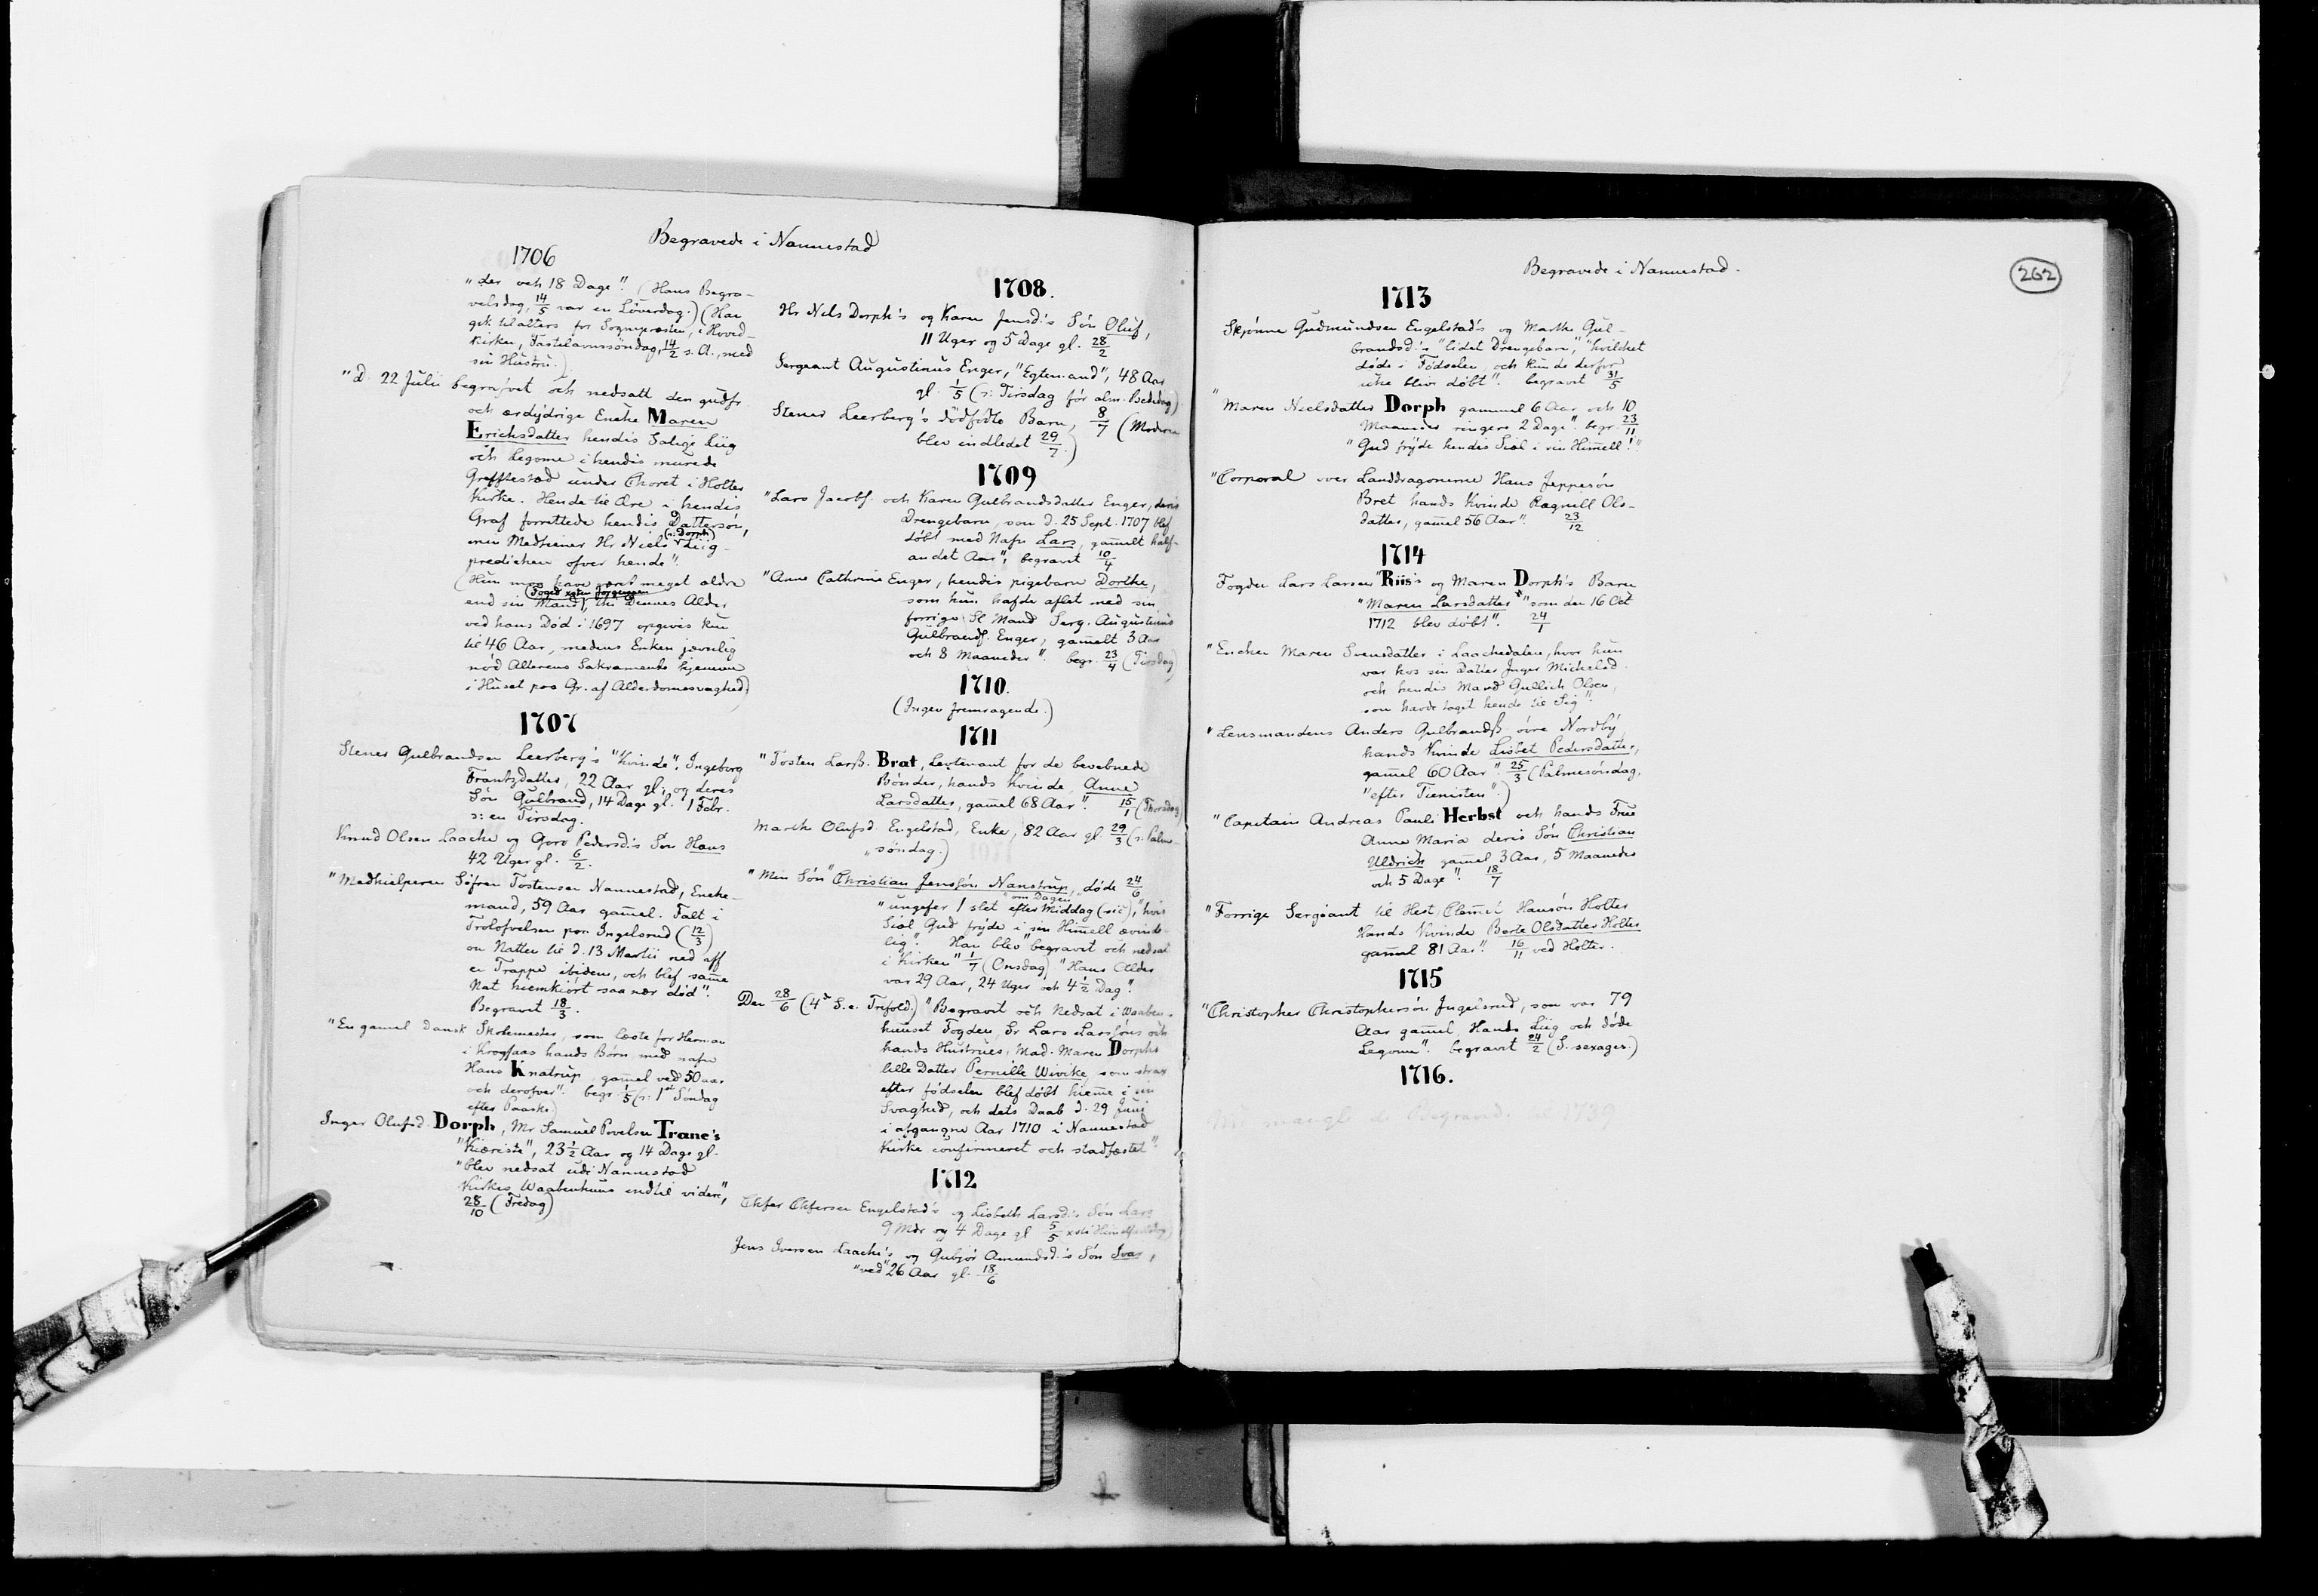 Begravede i Nannestad
1706
"der och 18 Dage". (Hans Begra-
velsdag, 14/5 var en Löverdag.) (Han
gik til alters for Sognepræsten, i Hoved-
kirken, Fastelavnssöndag, 14/2 s.A., med
sin Hustru.)
"D. 22 Julii begrafvet och nedsatt den gudfr.
och ærdydrige Encke Maren
Erichsdatter hendis Salige Liig
och Legome i hendis murede
Greffstestæd under Choret i Holter
Kirke. Hende til Ære i hendis
Graf forrettede hendis Dattersøn,
min Medtiener Hr Niels (ɔ: Dorph) Liig-
predichen ofver hende".
(Hun maa have været meget ældre
end sin Mand (Foged xsten Jørgensen), thi Dennes Alder
ved hans Død i 1697 opgives kun
til 46 Aar, medens Enken jævnlig
nød Alterens Sakramente hjemme
i Huset paa Gr. af Alderdomssvaghed)
1707
Stener Gulbrandsen Leerberg's "Kvinde", Ingeborg
Frantzdatter, 22 Aar gl., og deres
Søn Gulbrand, 14 Dage gl. 1 Febr.
ɔ: en Tirsdag.
Knud Olsen Laache og Goro Pedersd's Søn Hans
42 Uger gl. 6/2.
"Medhielperen Söfren Tostensen Nannestad, Encke-
mand, 59 Aar gamel. Falt i
Trolofvelsen paa Ingelsrud (12/3)
om Natten til d. 13 Martii ned aff
en Trappe ibidem, och blef same
Nat hiemkiört saa nær død".
Begravet 18/3.
"En gamel Dansk Skolemester, som læste for Herman
i Krogsaas hands Børn, med nafn
Hans Knatrup, gamel ved 50 aar
och derofver". begr. 1/5 (ɔ: 1st Søndag
efter Paaske)
Inger Olufsd. Dorph, Mr Samuel Povelsen Trane's
"Kiæriste", 23 1/2 Aar og 14 Dage gl.
"blev nedsat udi Nannestad
Kirkes Waabenhuus indtil videre",
28/10 (Fredag)
1708.
Hr Nels Dorph's og Karen Jensd's Søn Oluf,
11 Uger og 5 Dage gl. 28/2
Sergeant Augustinus Enger, "Egtemand", 48 Aar
gl. 1/5 (ɔ: Tirsdag før alm. Bededag)
Stener Leerberg's dödfödte Barn, 8/7 (Moderen
blev indledet 29/7.)
1709
"Lars Jacobs. och Karen Gulbrandsdatter Enger, deris
Drengebarn, som d. 25 Sept. 1707 blef
døbt med Nafn Lars, gamelt half-
andet Aar", begravet 10/4
"Anne Cathrine Enger, hendis pigebarn Dorthe,
som hun hafde aflet med sin
forrige Sl Mand Serg. Augustinus
Gulbrands. Enger, gamelt 3 Aar
och 8 Maaneder". begr. 23/4 (Tirsdag)
1710.
(Ingen fremragende.)
1711
"Tosten Larss. Brat, Leutenant for de bevæbnede
Bønder, hands Kvinde, Anne
Larsdatter, gamel 68 Aar". 15/1 (Thorsdag)
Marthe Olufsd. Engelstad, Enke, 82 Aar gl. 29/3 (ɔ: Palme-
søndag.)
"Min Søn" Christian Jenssøn Nanstrup, døde 24/6
"om Dagen
"ungefer 1 slet efter Middag (sic), "hvis
Siæl Gud fryde i sin Himell ævinde-
lig". Han blev "begravit och nedsat
i Kirken" 1/7 (Onsdag) "Hans Alder
var 29 Aar, 24 Uger och 4 1/2 Dag".
Den 28/6 (4de S. e. Trefold.) "Begravit och Nedsat i Waaben-
huuset Fogden, Sr Lars Larsføns och
hands Hustrues, Mad. Maren Dorphs
lille Datter Pernille Wivike, som strax
efter fødselen blef døbt hieme i sin
Svaghed, och dets Daab d. 29 Junij
i afgangne Aar 1710 i Nannestad
Kirke confirmeret och stadfæstet".
1712
Elefser Elefsersen Engelstad's og Lisbeth Larsd's Søn Lars
9 Mdr og 4 Dage gl 5/5 xsti Himelfartsdag
Jens Iversen Laache's og Gubjør Amundsd's Søn Ivar,
"ved" 26 Aar gl. 18/6
262
Begravede i Nannestad.
1713
Skjønne Gudmundsen Engelstad's og Marthe Gul-
brandsd's "lidet Drengebarn", "hvilcket
døde i Fødselen, och kunde derfor
icke blive døbt". begravit 31/5
"Maren Nielsdatter Dorph gammel 6 Aar och 10
Maaneder ringere 2 Dage". begr. 23/11
"Gud fryde hendis Siæl i sin Himell!"
"Corporal over Landdragonerne Hans Jeppesøn
Bret hands Kvinde Ragnell Ols-
datter, gamel 56 Aar". 23/12
1714
Fogden Lars Larsen Riis's og Maren Dorph's Barn
"Maren Larsdatter" "som den 16 Oct
1712 blev døbt". 24/1
"Encken Maren Svensdatter i Laachedalen, hvor hun
var hos sin Datter Inger Michelsd.
och hendis Mand Gullich Olsen,
som havde taget hende til Sig".
"Lensmandens Anders Gulbrandss. øvre Nordby
hands Kvinde Lisbet Pedersdatter,
gamel 60 Aar". 25/3 (Palmesøndag,
"efter Tienisten".)
"Capitain Andreas Pauli Herbst och hands Frue
Anne Maria deris Søn Christian
Uldrich gamel 3 Aar, 5 Maaneder
och 5 Dage". 18/7
"Forrige Sergiant til Hest, Clemet Hansøn Holter
Hands Kvinde Berte Olsdatter Holter
gamel 81 Aar". 16/11 ved Holter.
1715
"Christopher Christophersøn Ingelsrud, som var 79
Aar gamel, Hands Liig och døde
Legome". begravit 24/2 (S. sexages.)
1716.
Nu mangl. de Begravede til 1739